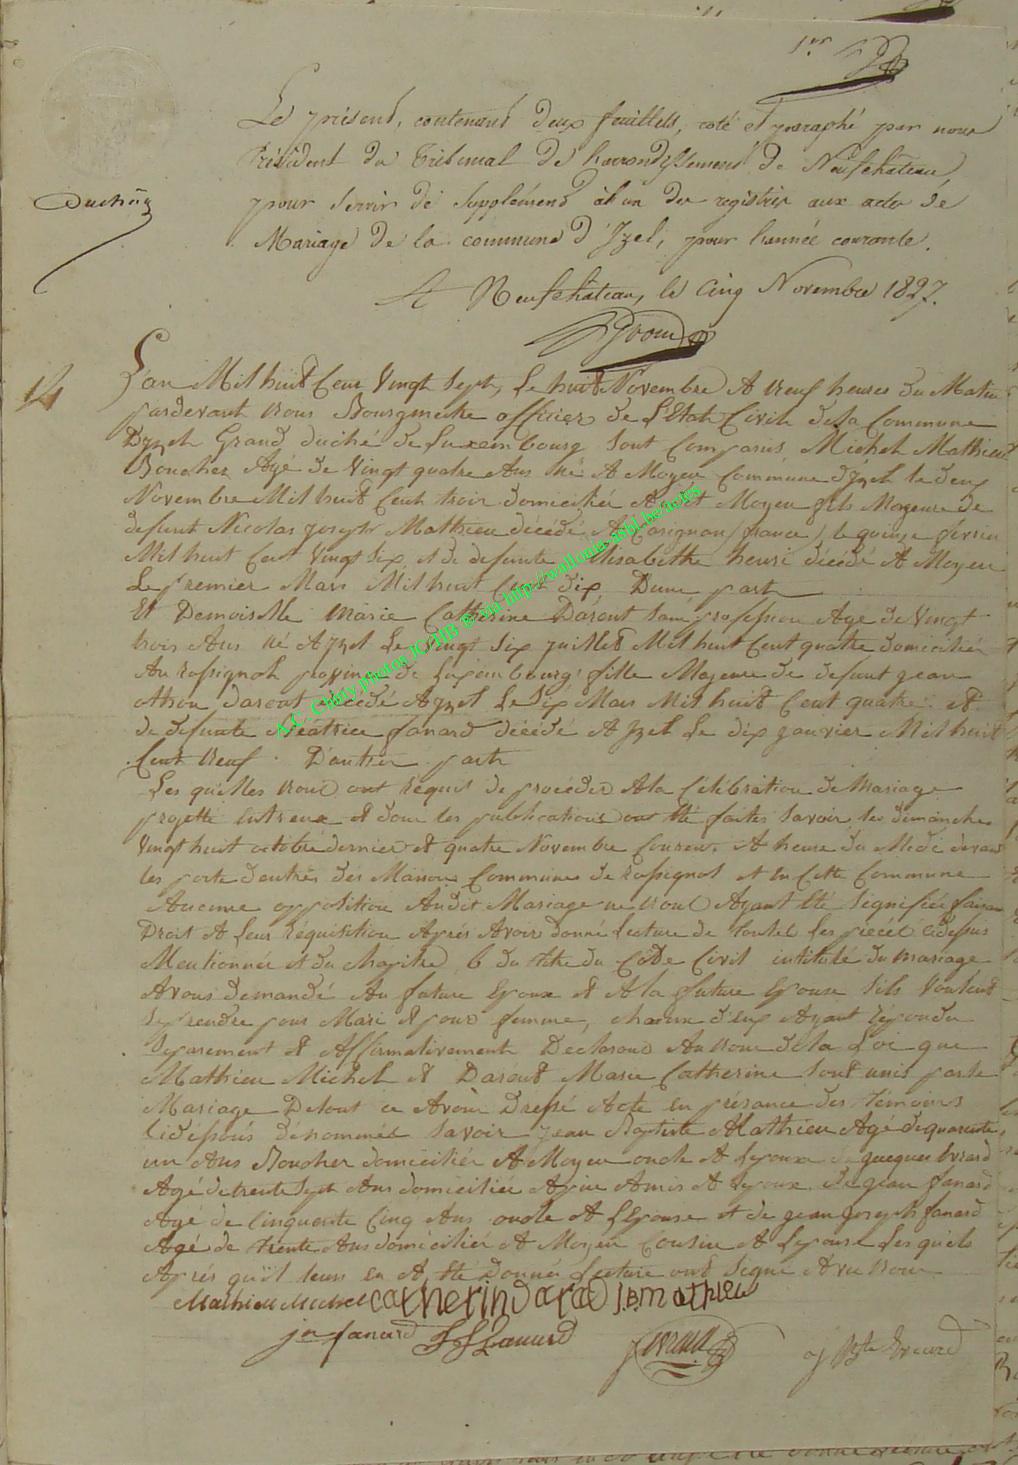 1.er
Le présent, contenant deux feuillets, coté et paraphé par nous
Président du Tribunal de l'arrondissement de Neufchâteau,
pour servir de supplément à l'un des registres aux actes de
Mariage de la commune d'Izel, pour l'année courante.
A Neufchâteau, le cinq Novembre 1827.
14
L'an Mil huit Cent Vingt Sept, Le huit Novembre A neuf heures du Matin
pardevant nous Bourgmestre officier de L'Etat Civil de la Commune
Dyzel Grand duché de Luxembourg sont Comparus Michel Mathieu
Boucher Agé de Vingt quatre Ans né A Moyen Commune dyzel le deux
Novembre Mil huit Cent trois domicilié Moyen fils Majeure de
defunt Nicolas joseph Mathieu décédé A Carignan (france) le quinze fevrier
Mil huit Cent Vingt Six et de defunte Elisabethe henri décédé A Moyen
Le premier Mars Mil huit Cent dix Dune part
Et Demoiselle Marie Catherine Darout sans profession Agé de Vingt
trois Ans né Ayzel Le Vingt Six juillet Mil huit Cent quatre domicilié
Au rossignol province de Luxembourg fille Majeure de defunt jean
Darout décédé Ayzel Le Six Mars Mil huit Cent quatre et
de defunte Béatrice fanard décédé A yzel Le dix janvier Mil huit
Cent Neuf . D'autre part
Les quelles nous ont réquis de procéder A la Célébration de Mariage
projetté entreux et dont les publications ont été faites Savoir les dimanches
Vingt huit octobre dernier et quatre Novembre Courent A heure du Midi devant
les porte d'entrés des Maison Commune de rossignol et en Cette Commune
Aucune opposition Audit Mariage ne nous Ayant été Signifiée faisan
Droit A Leur réquisition Après Avoir donné Lecture de toutes Les pieces cidessus
Mentionnée et du chapitre 6 du titre du Code Civil intitulé du mariage
Avons demandé Au future Epoux et A la future Epouse Sils Veulent
Se prendre pour Mari et pour femme, chacun d'eux Ayant repondu
Séparement et Affirmativement Declarons Au nom de la Loi que
Mathieu Michel et Darout Marie Catherine Sont unis par le
Mariage De tout ce Avons Dressé Acte En présance des témoins
Cidéssous dénommés Savoir jean Baptiste Mathieu Agé de quarente
un Ans Boucher domicilié A Moyen oncle A Lepoux
Agé de trente Sept Ans domiciliée Amis A Lepoux de jean fanard
Agé de Cinquente Cinq Ans oncle A L'Epouse et de jean joseph fanard
Agé de trente Ans domicilié A Moyen Cousin A Lepouse Lesquels
Après qu'il leurs En A été Donnée Lecture ont Signé Avec nous
Mathieu Michel catherin darad J.B. mathieu
jn fanard J J fanard
A.C. Chiny photos JCHB © via http://wallonia-asbl.be/actes